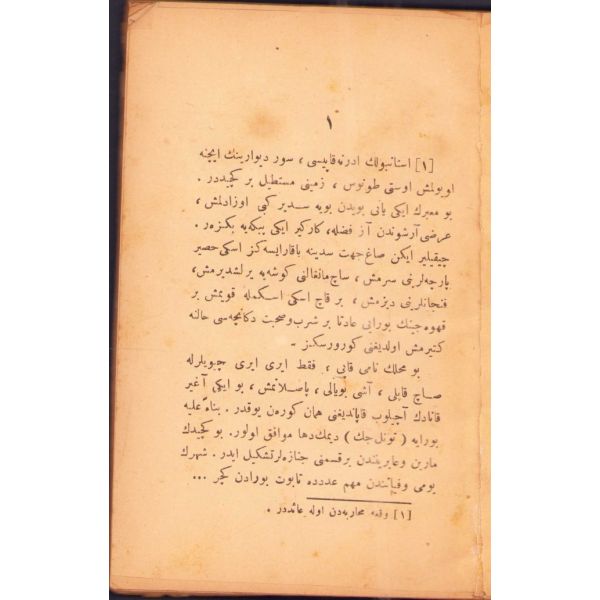 ١
[١] استانبولك ادرنه قاپیسی ، سور دیوارینك ایچنه
اویولمش اوستی طونوس ، زمینی مستطیل بر كچیددر .
بو معبرك ایكی یانی بویدن بویه ســدیر كبی اوزادلمش ،
عرضی آرشوندن آز فضله، كاركیر ایكی پیكه یه بكزەر .
چیقیلیر ایكن صاغ جهت سدینه باقارایسه كز اسكی حصیر
پارچه لرینی سرمش ، ساچ مانغالنی كوشه یه یرلشدیرمش،
فنجانلرینی دیزمش ، بر قاچ اسكی اسكمله قویمش بر
قهوه جینك بورایی عادتا بر شرب و صحبت دكانچه سی حالنه
كتیرمش اولدیغنی كورورسكز .
بو محلك نامی قاپی ، فقط ایری ایری چیویلرله
صــاچ قاپلی ، آشی بویالی ، پاصــلانمش ، بو ایكی آغیر
قانادك آچیلوب قاپاندیغنی همان كورەن یوقدر . بناءً علیه
بورایه ( تونل جك ) دیمك دها موافق اولور . بو كچیدك
مارین و عابریندن بر قسمنی جنازه لر تشكیل ایدر . شهرك
یومی وفیاتندن مهم عددده تابوت بورادن كچر ...
[١] وقعه محاربه دن اوله عائددر .